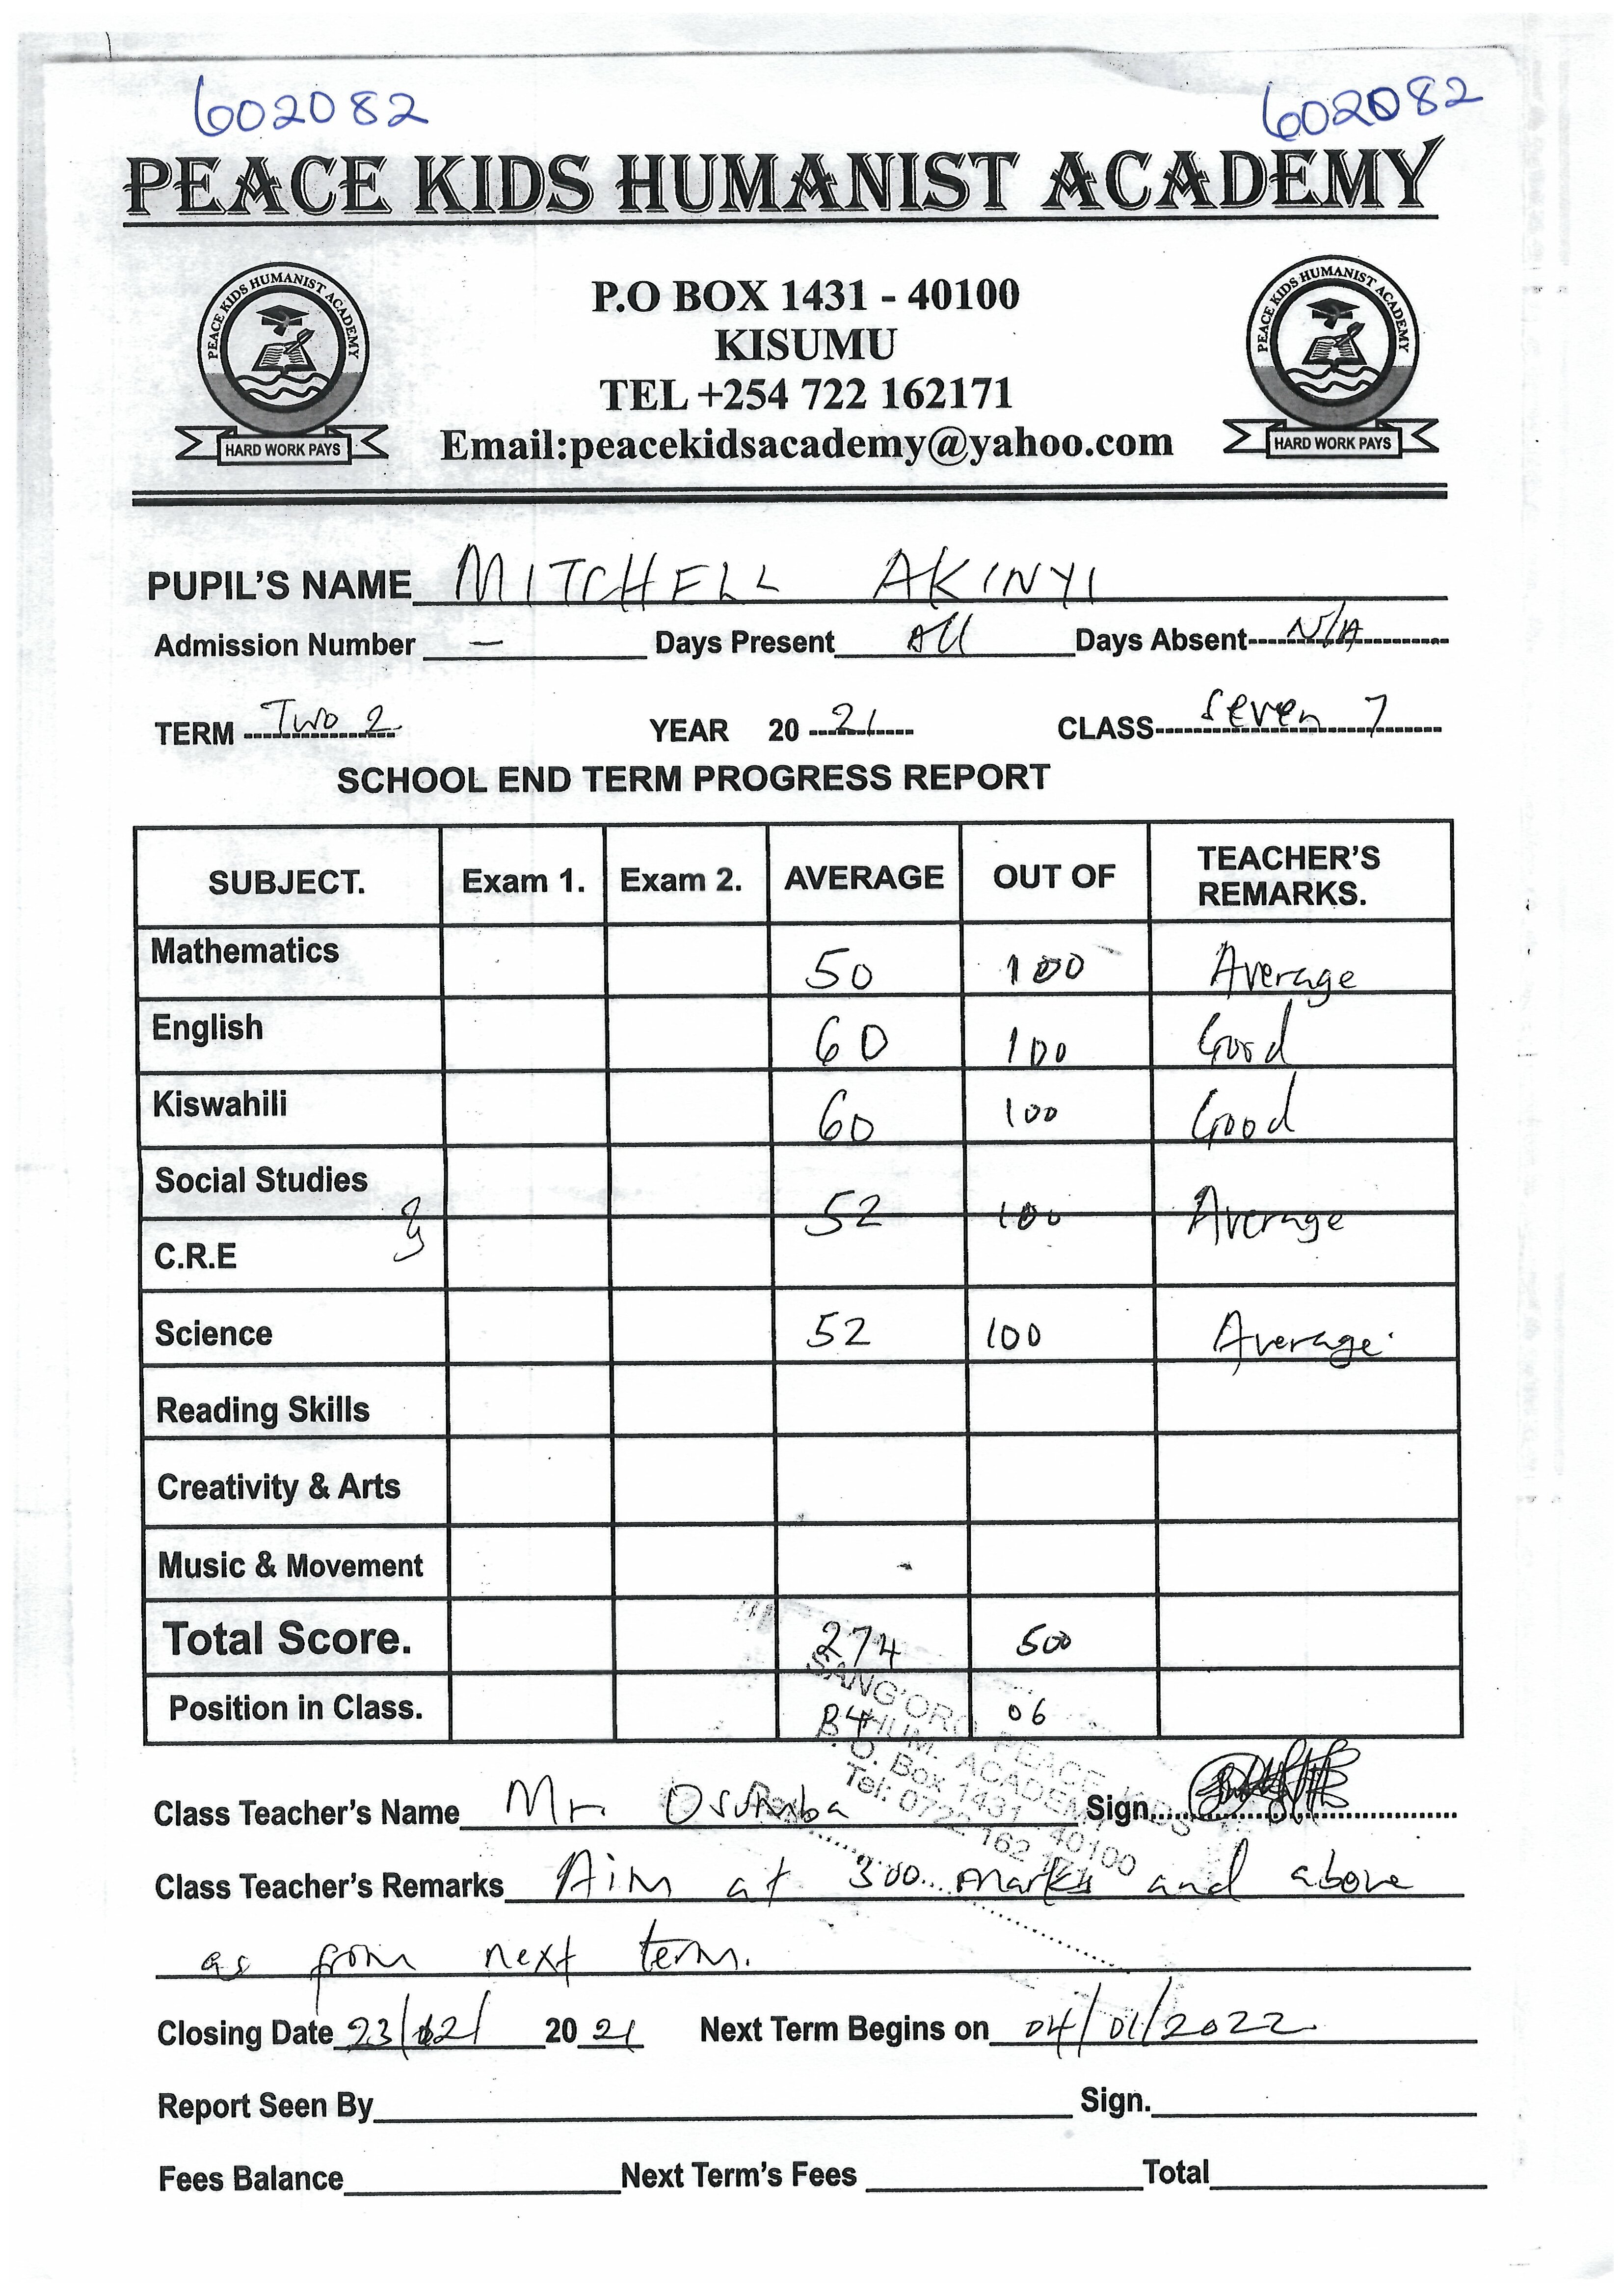 602082 602082
PEACE KIDS HUMANIST ACADEMY
PEACE KIDS HUMANIST ACADEMY
HARD WORK PAYS
P.O BOX 1431 - 40100
KISUMU
TEL +254 722 162171
Email:peacekidsacademy@yahoo.com
PEACE KIDS HUMANIST ACADEMY
HARD WORK PAYS
PUPIL'S NAME MITCHELL AKINYI
Admission Number — Days Present All Days Absent N/A
TERM Two 2 YEAR 20 21 CLASS Seven 7
SCHOOL END TERM PROGRESS REPORT
SUBJECT. Exam 1. Exam 2. AVERAGE OUT OF TEACHER'S REMARKS.
Mathematics 50 100 Average
English 60 100 Good
Kiswahili 60 100 Good
Social Studies
C.R.E 52 100 Average
Science 52 100 Average.
Reading Skills
Creativity & Arts
Music & Movement
Total Score. 274 500
Position in Class. 06
SANG'ORO PEACE KIDS
HUM. ACADEMY
P.O. Box 1431 - 40100
Tel: 0722 162 171
Class Teacher's Name Mr Sign.
Class Teacher's Remarks Aim at 300 marks and above
as from next term.
Closing Date 23/12/ 20 21 Next Term Begins on 04/01/2022
Report Seen By Sign.
Fees Balance Next Term's Fees Total